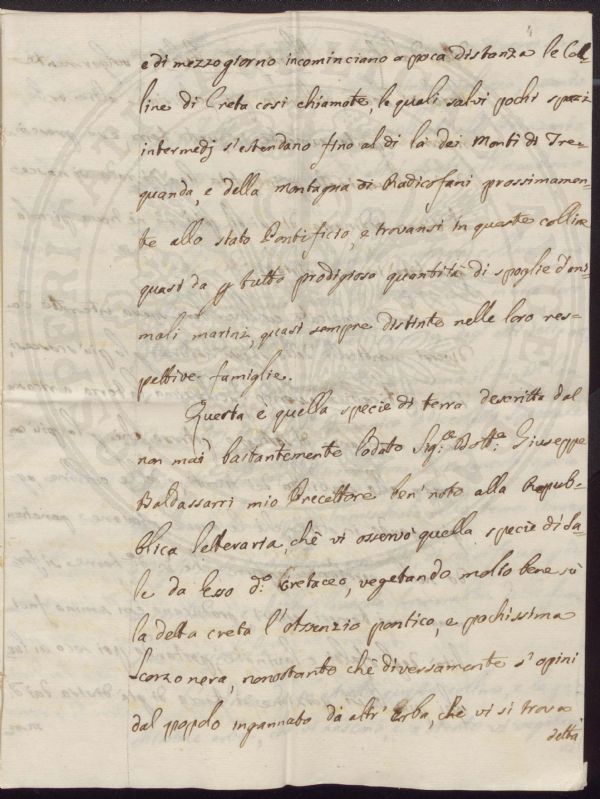 e di mezzogiorno incominciano a poca distanza le Col-
line di Creta così chiamate, le quali salvi pochi spazi
intermedj s'estendano fino al di là dei Monti di Tre-
quanda, e della Montagna di Radicofani prossimamen-
te allo stato Pontificio, e trovansi in queste colline
quasi da p tutto prodigiosa quantità di spoglie d'ani-
mali marini, quasi sempre distinte nelle loro res-
pettive famiglie.
Questa è quella specie di terra descritta dal
non mai bastantemente lodato Sig.re Dott.e Giuseppe
Baldassarri mio Precettore ben' noto alla Repub-
blica letteraria, chè vi osservò quella specie di sa-
le da Esso d.o Cretaceo, vegetando molto bene sù
la detta creta l'Assenzio pontico, e pochissima
Scorzonera, nonostante chè diversamente s'opini
dal popolo ingannato dà altr' Erba, chè vi si trova
detta